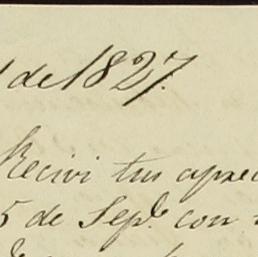 de 1827.
Recivi tus aprec
5 de Sepe. con